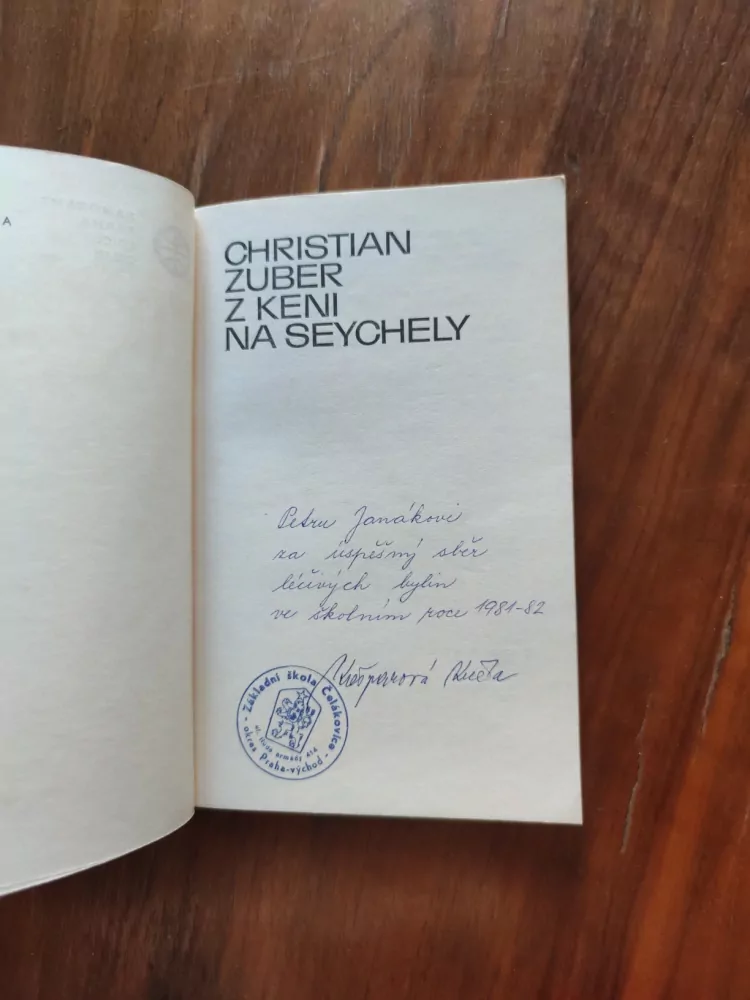 A
CHRISTIAN
ZUBER
Z KENI
NA SEYCHELY
Petru Janákovi
za úspěšný sběr
léčivých bylin
ve školním roce 1981-82
Kašparová
Základní škola Čelákovice
armády 414
- okres Praha-východ -